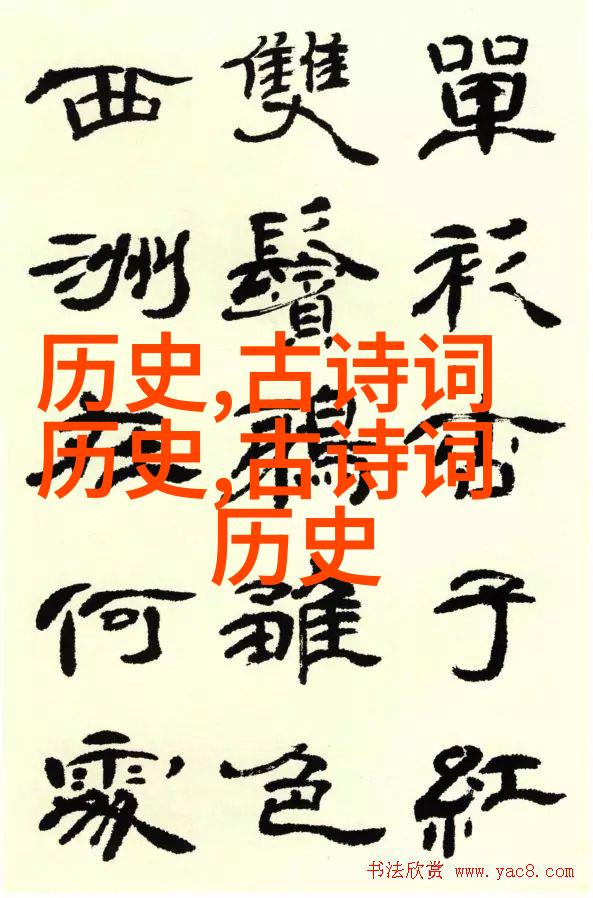 單衫杏子紅
雙鬢鴉雛色
西洲在何處
历史,古诗词
历史,古诗词
历史
书法欣赏 www.yac8.com